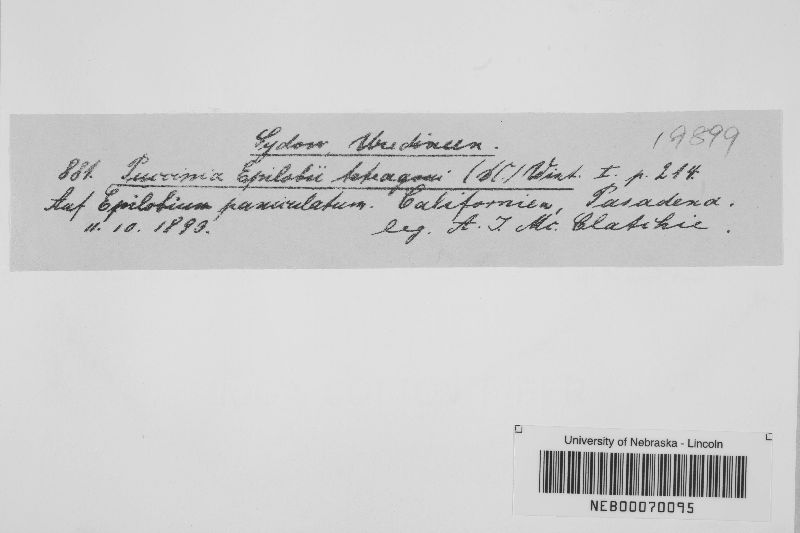 Sydow, Uredineen.
19899
881. Puccinia Epilobii tetragoni (DC) Wint. I. p. 214.
Auf Epilobium paniculatum. Californien, Pasadena.
11. 10. 1893. leg. A. J. Mc. Clatchie.
University of Nebraska - Lincoln
NEB00070095